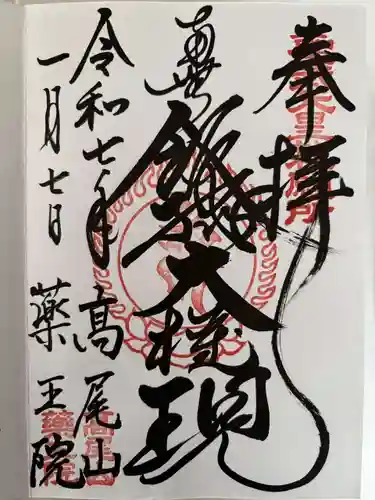 奉拝
南無飯縄大権現
令和七年
一月七日
高尾山
薬王院